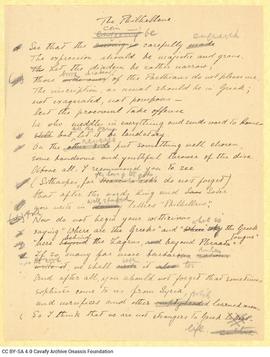 The Philhellene
coin be engraved
See that the carefully
The expression should be majestic and grave.
The diadem be rather narrow;
those of the Parthians do not please me.
The inscription, as usual should be in Greek;
not exaggerated, not pompous —
lest the proconsul take offence
he who meddles in everything and sends word to home
but let it be laudatory.
On the put something well chosen
some handsome and youthful thrower of the disc.
Above all I recommend you to see
(Sithaspes, do not forget)
that after the words king and
in letters "Philhellene".
Now do not begin your witticisms
saying "Where are the Greeks" and the Greek
beyond the Zagros, beyond Phraata".
If so many far more barbarous
we shall it
And after all, you should not forget that sometimes
sophists come to us from Syria
and versifiers and other learned men.
So I think that we are not strangers to Greek
life
CC BY-SA 4.0 Cavafy Archive Onassis Foundation